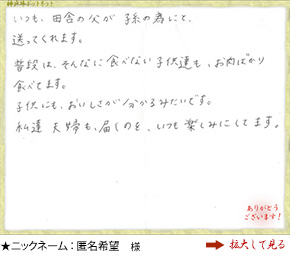 いつも、田舎の父が子系の為にと、
送ってくれます。
普段は、そんなに食べない子供達も、お肉ばかり
食べてます。
子供にも、おいしさが分かるみたいです。
私達夫婦も、届くのを、いつも楽しみにしてます。
ありがとう
ございます!
★ニックネーム：匿名希望 様
➡拡大して見る